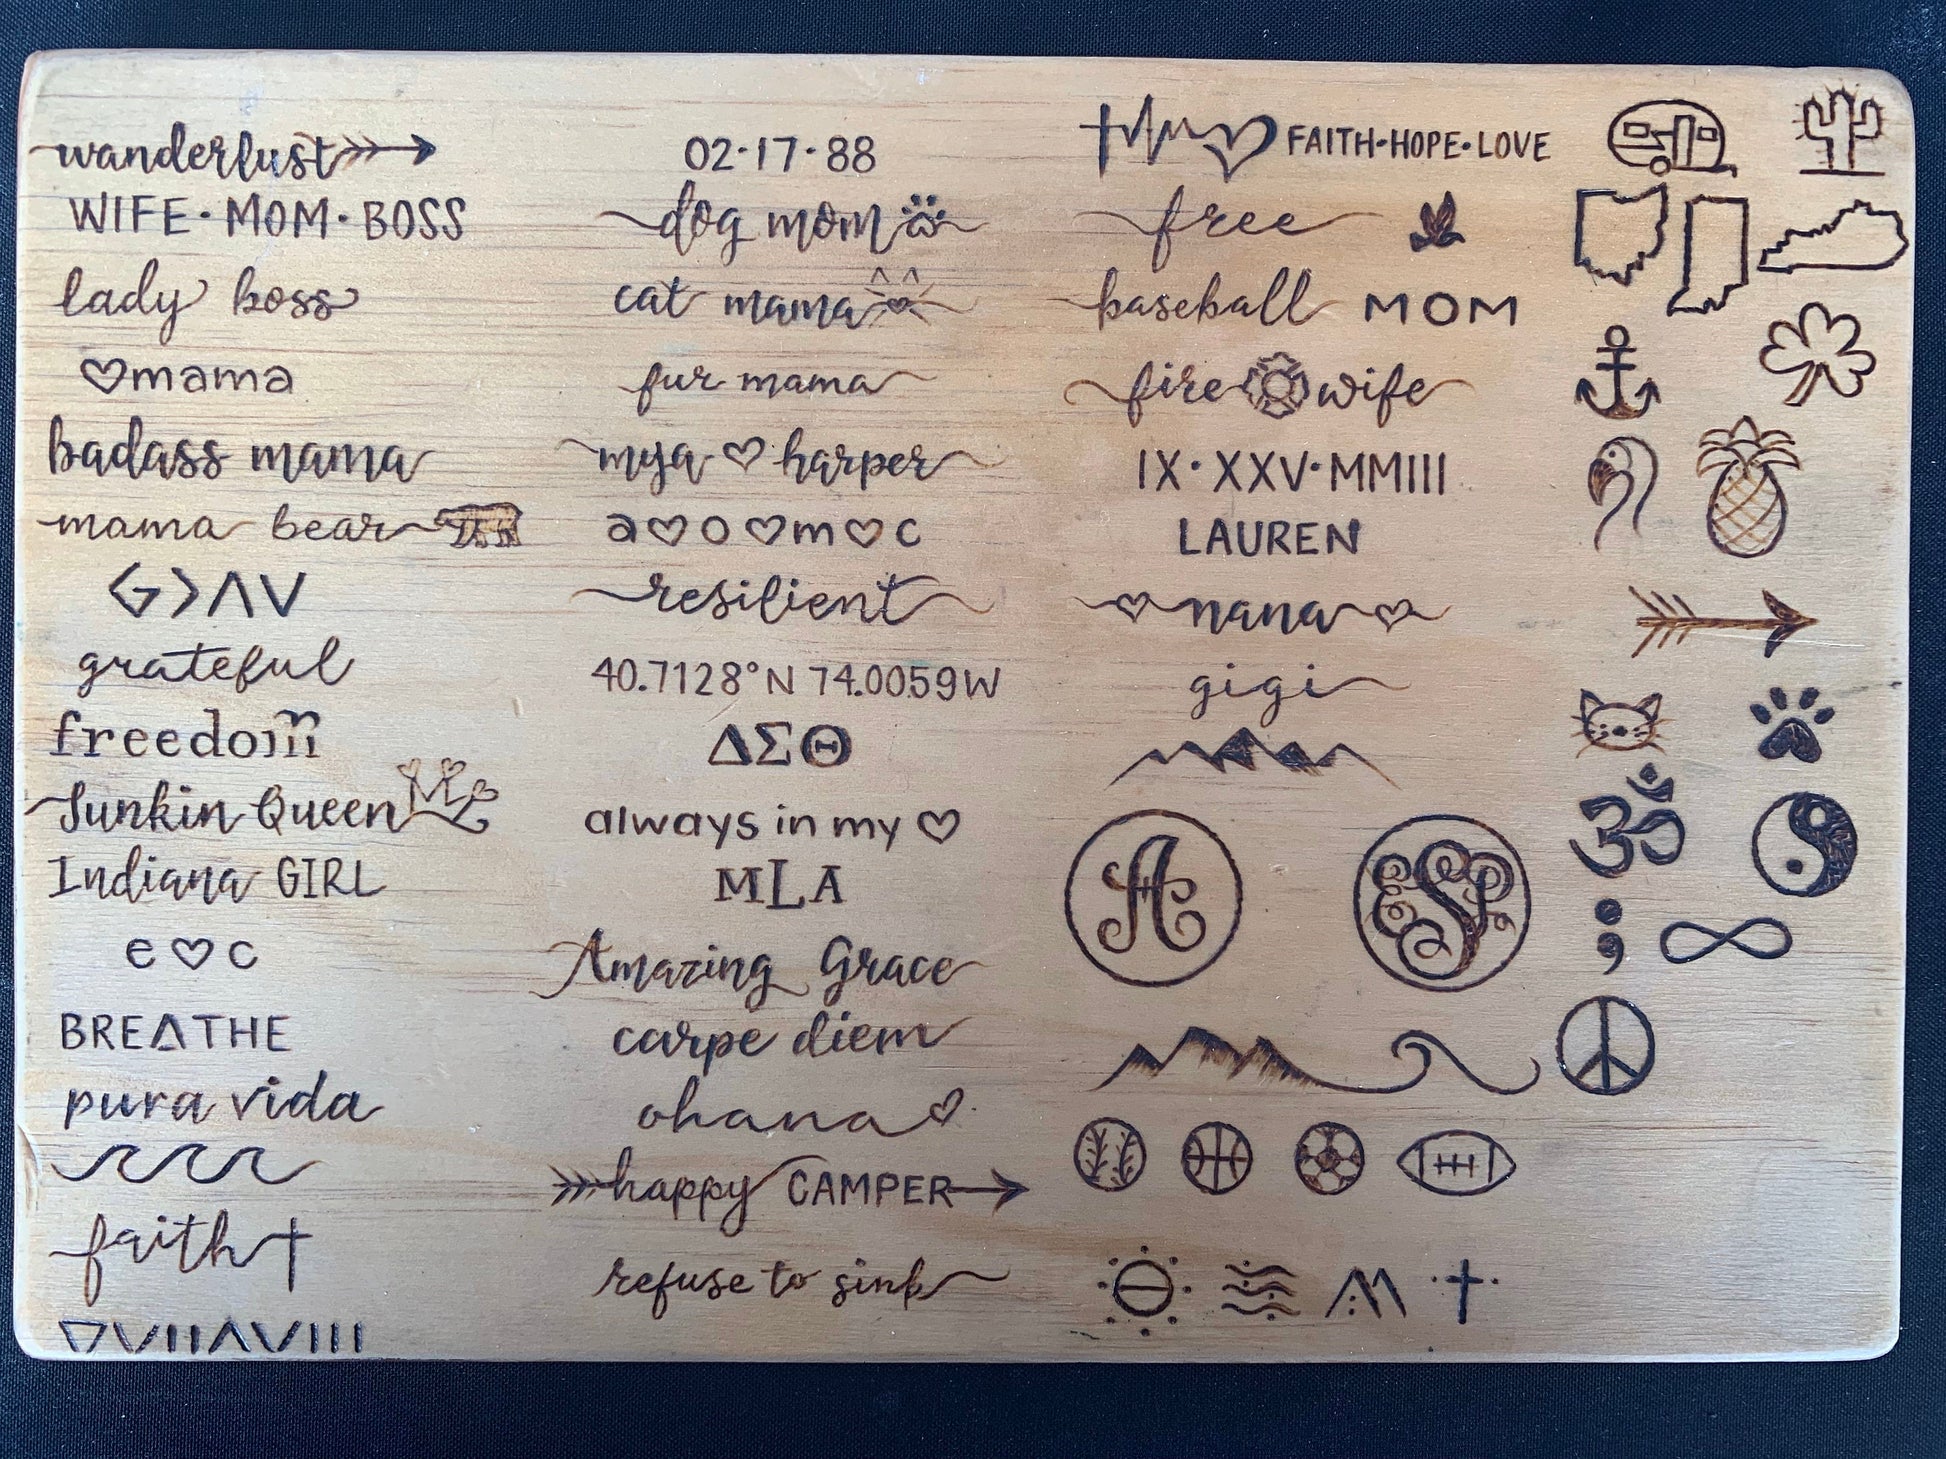 wanderlust
WIFE · MOM · BOSS
lady boss
♡mama
badass mama
mama bear
G > ∧ ∨
grateful
freedom
Junkin Queen
Indiana GIRL
e ♡ c
BREATHE
pura vida
faith
02·17·88
dog mom
cat mama
fur mama
mya ♡ harper
a♡o♡m♡c
resilient
40.7128°N 74.0059W
ΔΣΘ
always in my ♡
MLA
Amazing Grace
carpe diem
ohana♡
happy CAMPER
refuse to sink
FAITH·HOPE·LOVE
free
baseball MOM
fire wife
IX·XXV·MMIII
LAUREN
♡nana♡
gigi
A
ESP
ॐ
;